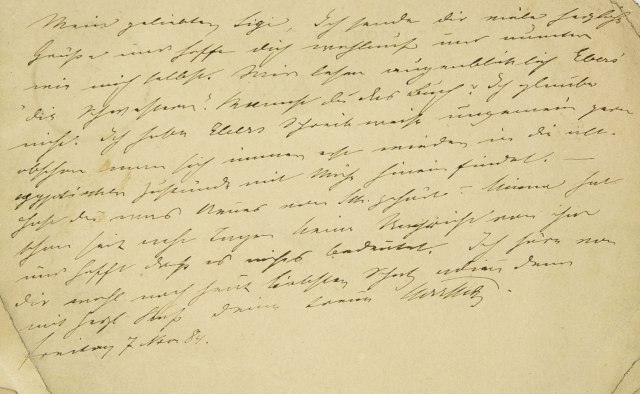 Mein geliebter Sigi, Ich sende dir viele herzliche
Grüße und hoffe dich wohlauf und munter
wie mich selbst. Wir lesen augenblicklich Ebers'
"die Schwestern". Kennst du das Buch? Ich glaube
nicht. Ich habe Ebers Schreibweise ungemein gern
obschon man sich immer erst wieder in die alt-
egyptischen Zustände mit Mühe hineinfindet. —
Hast du was Neues von gehört — Minna hat
schon seit acht Tagen keine Nachricht von ihm
und hofft daß es nichts bedeutet. Ich höre von
dir wohl noch heute Liebster Schatz
mit herzl. Kuß deine treue
Freitag 7 Nov 84.